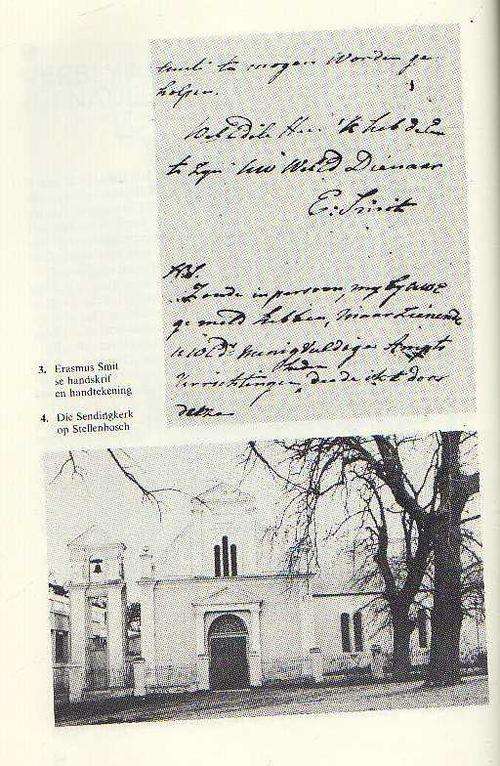 te mogen worden ge-
holpen.
WelEdele Heer 'k heb de Eer
te Zijn UW WelEd Dienaar
E: Smit
NB.
Zoude in persoon, my by UWE
gemeld hebben, maar ziende
menigvuldige Ampts
Verrichtingen deede ik het door
deeze
3. Erasmus Smit
se handskrif
en handtekening
4. Die Sendingkerk
op Stellenbosch